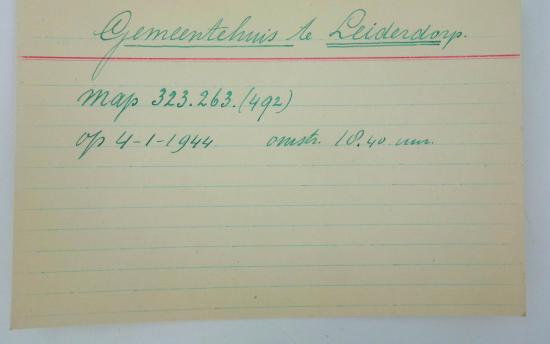 Gemeentehuis te Leiderdorp.
Map 323.263.(492)
op 4-1-1944 omstr. 18.40 uur.